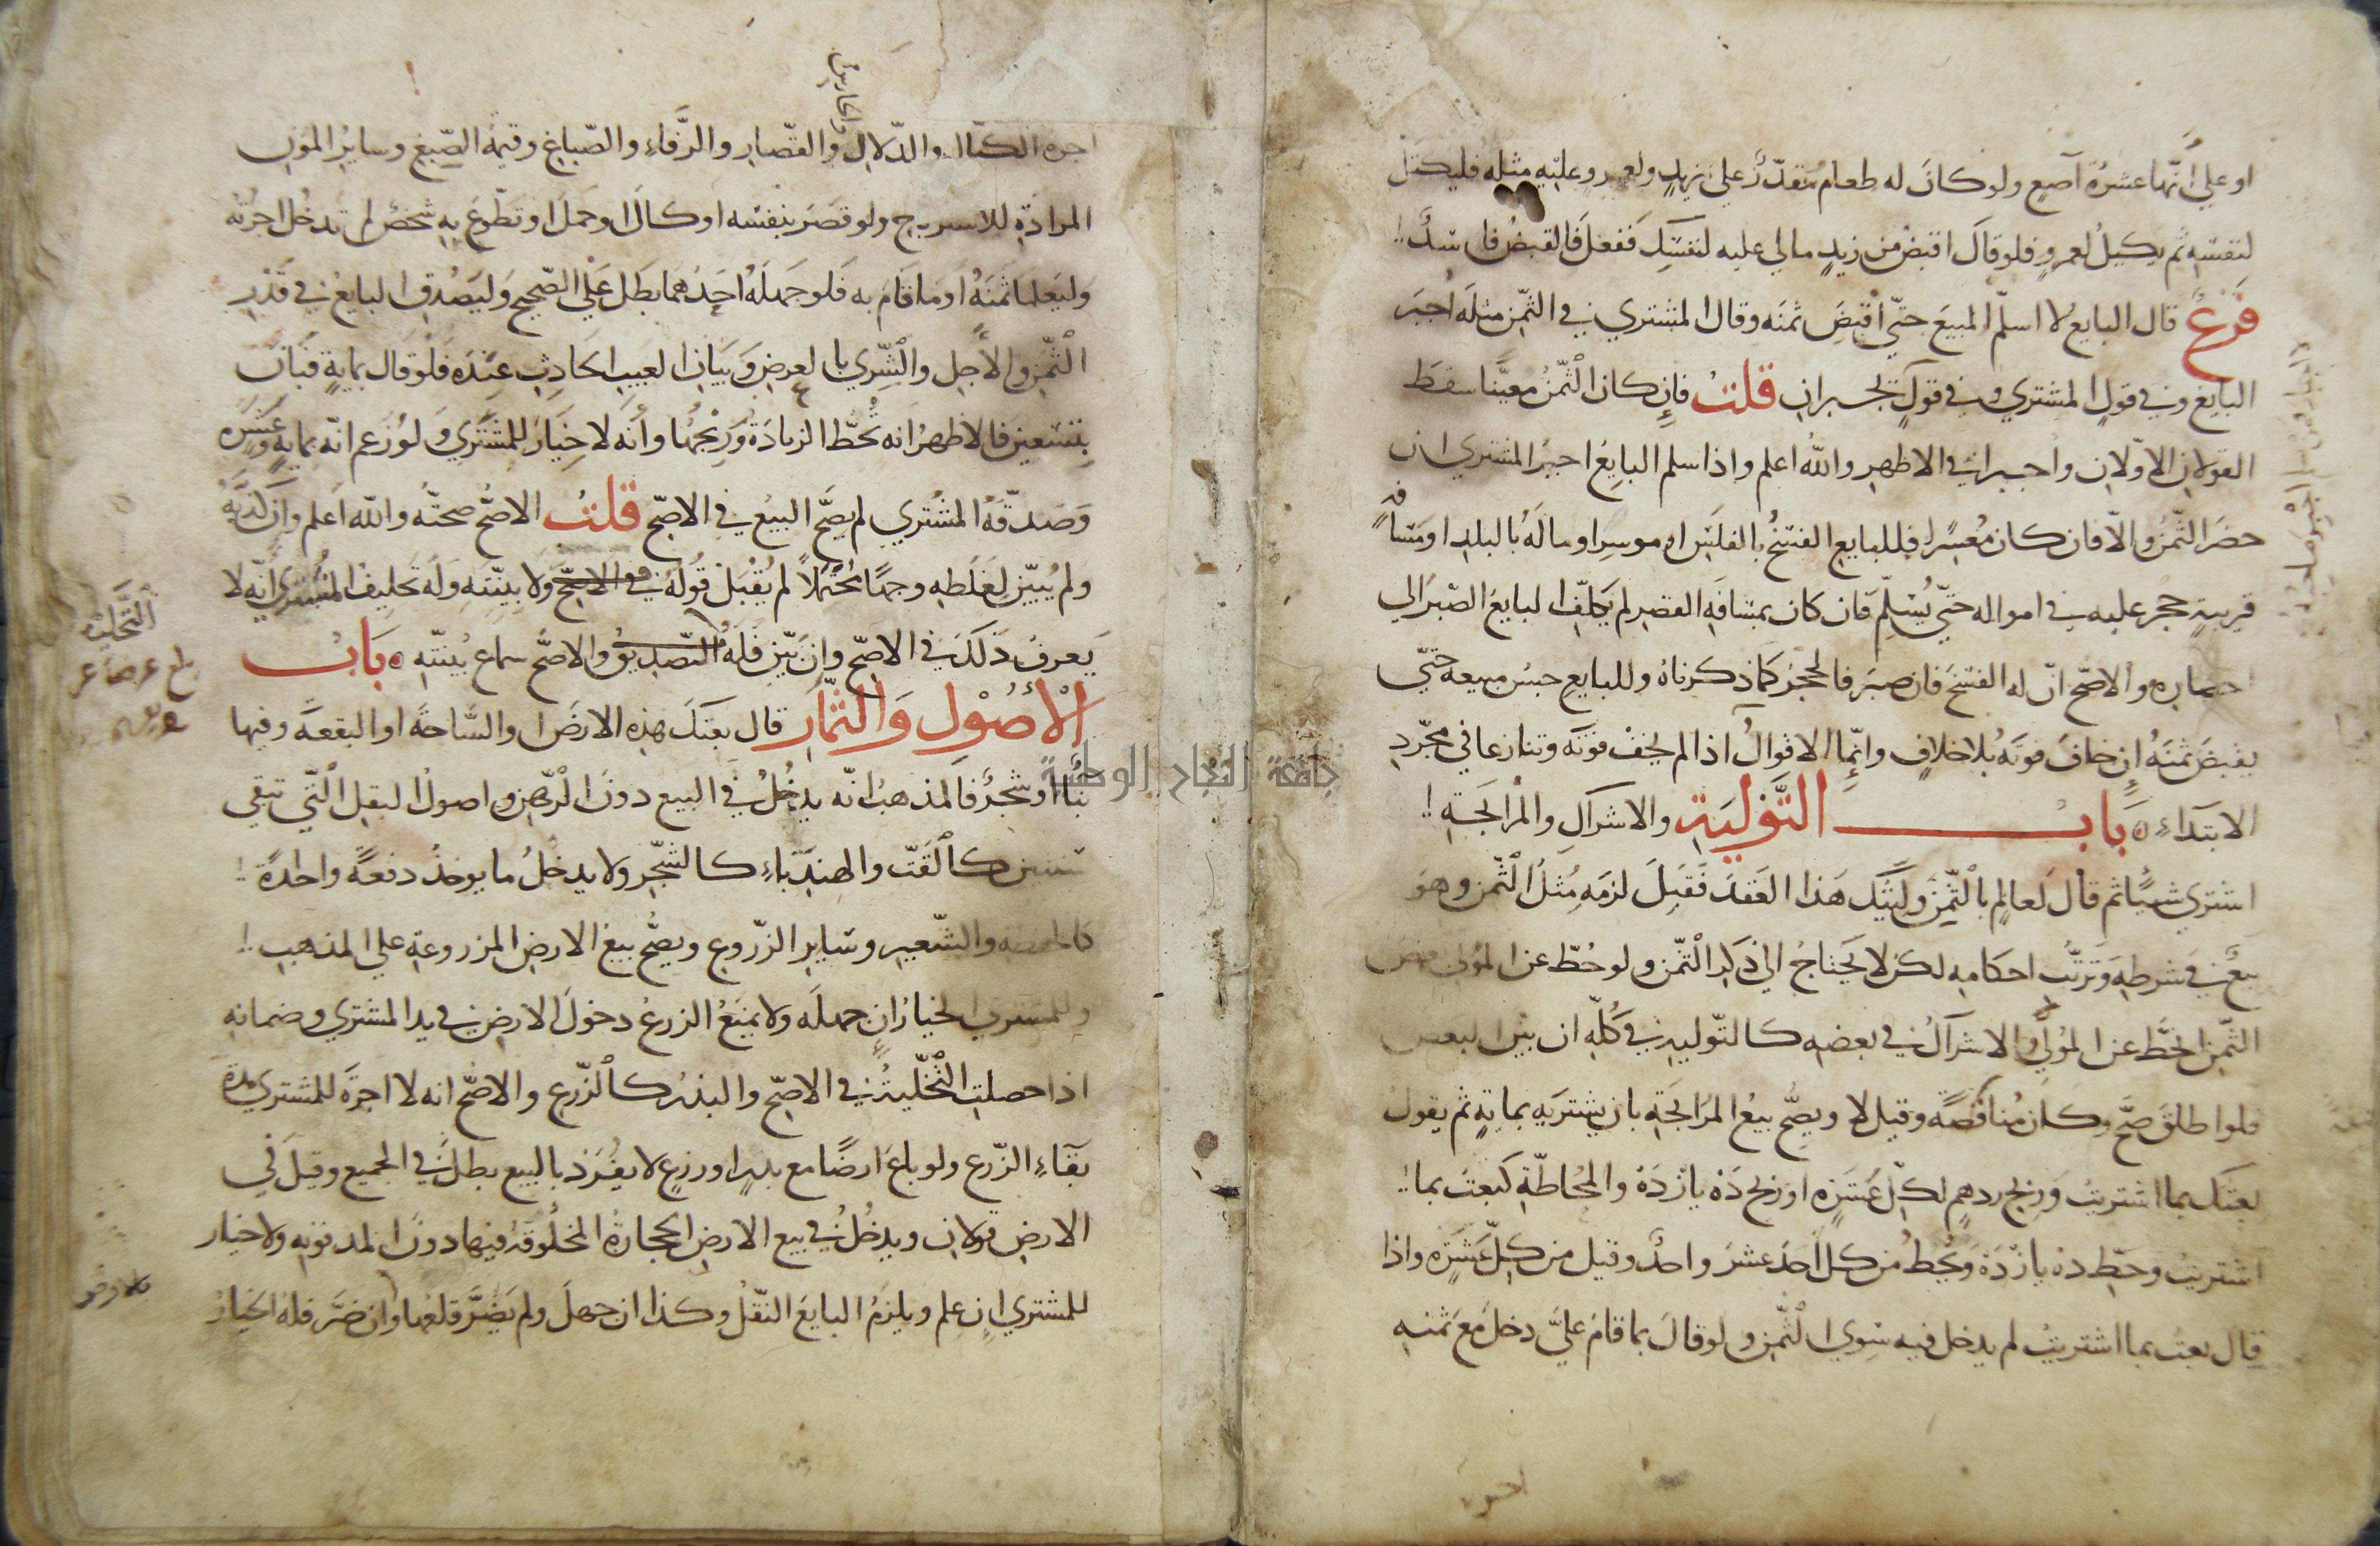 او على أنها عشرة آصع ولو كان له طعام مقدّر على زيد ولعمرو عليه مثله فليكتل
لنفسه ثم يكيل لعمرو فلو قال اقبض من زيد مالي عليه لنفسك ففعل فالقبض فاسد
فرع قال البايع لا اسلم المبيع حتى اقبض ثمنه وقال المشتري في الثمن مثله اجبر
البايع وفي قول المشتري وفي قول يجبران قلت فان كان الثمن معينا سقط
القولان الاولان واجبرا في الاظهر والله اعلم واذا سلم البايع اجبر المشتري ان
حضر الثمن والا فان كان معسرا فللبايع الفسخ بالفلس او موسرا وماله بالبلد او مسافة
قريبة حجر عليه في امواله حتى يسلم فان كان بمسافة القصر لم يكلف البايع الصبر الى
احضاره والاصح ان له الفسخ فان صبر فالحجر كما ذكرناه وللبايع حبس مبيعه حتى
يقبض ثمنه ان خاف فوته بلا خلاف وانما الاقوال اذا لم يخف فوته وتنازعا في مجرد
الابتداء ه باب التولية والاشراك والمرابحة
اشترى شيئا ثم قال لعالم بالثمن وليتك هذا العقد فقبل لزمه مثل الثمن وهو
بيع في شرطه وترتب احكامه لكن لا يحتاج الى ذكر الثمن ولو حط عن المولي بعض
الثمن انحط عن المولى والاشراك في بعضه كالتولية في كله ان بين البعض
فلو اطلق صح وكان مناقصة وقيل لا ويصح بيع المرابحة بان يشتريه بماية ثم يقول
بعتك بما اشتريت وربح درهم لكل عشرة او ربح ده يازده والمحاطة كبعت بما
اشتريت وحط ده يازده ويحط من كل احد عشر واحد وقيل من كل عشرة واذا
قال بعت بما اشتريت لم يدخل فيه سوى الثمن ولو قال بما قام علي دخل مع ثمنه
اجرة
والحارس
اجرة الكيال والدلال والقصار والرفاء والصباغ وقيمة الصبغ وساير المون
المرادة للاسترباح ولو قصر بنفسه او كال او حمل او تطوع به شخص لم تدخل اجرته
وليعلما ثمنه او ما قام به فلو جهله احدهما بطل على الصحيح وليصدق البايع في قدر
الثمن والاجل والشرى بالعرض وبيان العيب الحادث عنده فلو قال بماية فبان
بتسعين فالاظهر انه يحط الزيادة وربحها وأنه لا خيار للمشتري ولو زعم انه ماية وعشرة
وصدقه المشتري لم يصح البيع في الاصح قلت الاصح صحته والله اعلم وان كذبه
ولم يبين لغلطه وجها محتملا لم يقبل قوله في الاصح ولا بينته وله تحليف المشتري انه لا
يعرف ذلك في الاصح وان بين فله التصديق والاصح سماع بينته ه باب
الأصول والثمار قال بعتك هذه الارض او الساحة او البقعة وفيها
بناء او شجر فالمذهب انه يدخل في البيع دون الرهن واصول البقل التي تبقى
سنتين كالقت والهندباء كالشجر ولا يدخل ما يوخذ دفعة واحدة
كالحنطة والشعير وساير الزروع ويصح بيع الارض المزروعة على المذهب
وللمشتري الخيار ان جهله ولا يمنع الزرع دخول الارض في يد المشتري وضمانه
اذا حصلت التخلية في الاصح والبذر كالزرع والاصح انه لا اجرة للمشتري مدة
بقاء الزرع ولو باع ارضا مع بذر او زرع لا يفرد بالبيع بطل في الجميع وقيل في
الارض قولان ويدخل في بيع الارض الحجارة المخلوقة فيها دون المدفونة ولا خيار
للمشتري ان علم ويلزم البايع النقل وكذا ان جهل ولم يضر قلعها وان ضر فله الخيار
التخلية
جامعة النجاح الوطنية